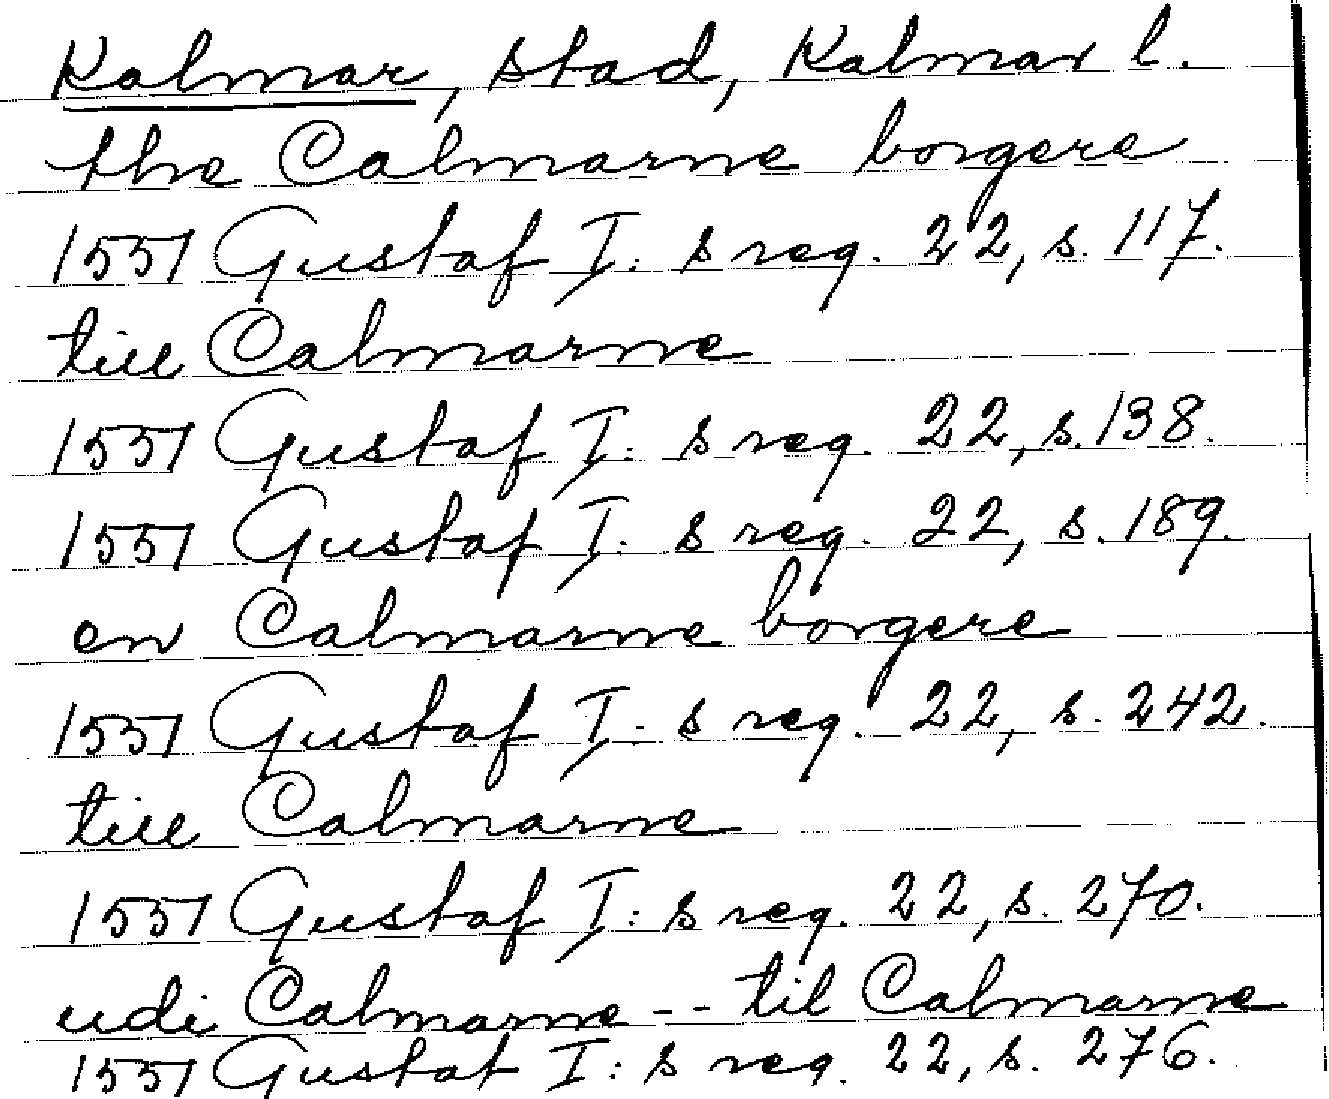 Kalmar, stad, Kalmar l.
the Calmarne borgere
1551 Gustaf I: s reg. 22, s. 117.
till Calmarne
1551 Gustaf I: s reg. 22, s. 138.
1551 Gustaf I: s reg. 22, s. 189.
en Calmarne borgere
1551 Gustaf I: s reg. 22, s. 242.
till Calmarne
1551 Gustaf I: s reg. 22, s. 270.
udi Calmarne -- til Calmarne
1551 Gustaf I: s reg. 22, s. 276.